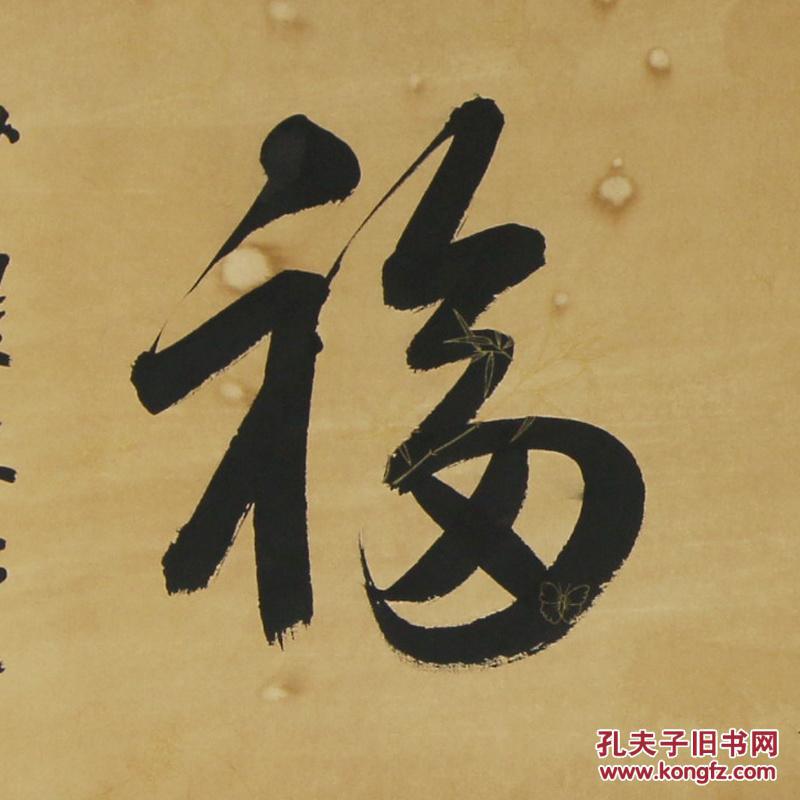 福
孔夫子旧书网
www.kongfz.com